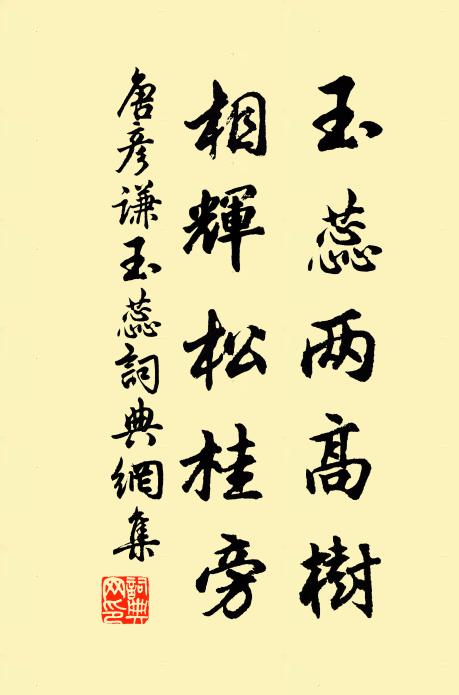 玉蕊两高樹
相輝松桂旁
唐彦谦玉蕊詞典網集
詞典網印